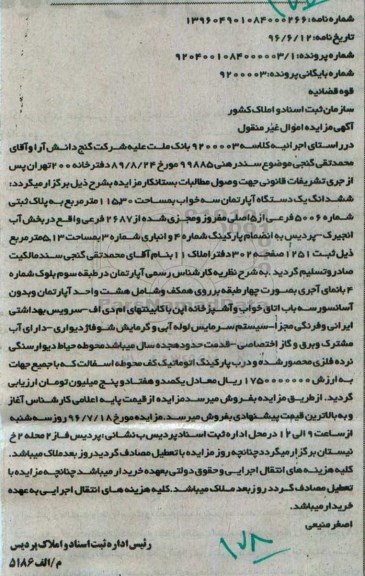 شماره نامه: ۱۳۹۶۰۴۹۰۱۰۸۴۰۰۰۲۶۶
تاریخ نامه: ۹۶/۶/۱۲
شماره پرونده: ۹۲۰۴۰۰۱۰۸۴۰۰۰۰۰۳/۱
شماره بایگانی پرونده: ۹۲۰۰۰۰۳
قوه قضائیه
سازمان ثبت اسناد و املاک کشور
آگهی مزایده اموال غیر منقول
در راستای اجرائیه کلاسه ۹۲۰۰۰۰۳ بانک ملت علیه شرکت گنج دانش آرا و آقای
محمدتقی گنجی موضوع سند رهنی ۹۹۸۸۵ مورخ ۸۹/۸/۲۴ دفترخانه ۲۰۰ تهران پس
از جری تشریفات قانونی جهت وصول مطالبات بستانکار مزایده بشرح ذیل برگزار میگردد:
ششدانگ یک دستگاه آپارتمان سه خواب بمساحت ۱۱۵.۳۰ مترمربع به پلاک ثبتی
شماره ۵۰۰۶ فرعی از ۵ اصلی مفروز و مجزی شده از ۲۶۸۷ فرعی واقع در بخش آب
انجیرک-پردیس به انضمام پارکینگ شماره ۴ و انباری شماره ۳ بمساحت ۵.۱۳ مترمربع
ذیل ثبت ۱۲۵۱ صفحه ۳۰۲ دفتر املاک ۱۱ بنام آقای محمدتقی گنجی سند مالکیت
صادر و تسلیم گردید. به شرح نظریه کارشناس رسمی آپارتمان در طبقه سوم بلوک شماره
۴ بانمای آجری بصورت چهار طبقه بر روی همکف و شامل هشت واحد آپارتمان و بدون
آسانسور سه باب اتاق خواب و آشپزخانه اپن با کابینتهای ام دی اف-سرویس بهداشتی
ایرانی و فرنگی مجزا-سیستم سرمایش لوله آبی و گرمایش شوفاژ دیواری-دارای آب
مشترک و برق و گاز اختصاصی-قدمت حدود هجده سال میباشد محوطه حیاط دیوار سنگی
نرده فلزی محصور شده و درب پارکینگ اتوماتیک کف محوطه اسفالت که با جمیع جهات
به ارزش ۱۷۵۰۰۰۰۰۰۰ ریال معادل یکصد و هفتاد و پنج میلیون تومان ارزیابی
گردید. از طریق مزایده بفروش میرسد مزایده از قیمت پایه اعلامی کارشناس آغاز
و به بالاترین قیمت پیشنهادی بفروش میرسد. مزایده مورخ ۹۶/۷/۱۸ روز سه شنبه
از ساعت ۹ الی ۱۲ در محل اداره ثبت اسناد پردیس به نشانی: پردیس فاز ۲ محله ۲ خ
نیستان برگزار میگردد چنانچه روز مزایده با تعطیل مصادف گردید روز بعد ملاک میباشد.
کلیه هزینه های انتقال اجرایی و حقوق دولتی بعهده خریدار میباشد چنانچه مزایده با
تعطیل مصادف گردد روز بعد ملاک میباشد. کلیه هزینه های انتقال اجرایی به عهده
خریدار میباشد.
اصغر منیعی
رئیس اداره ثبت اسناد و املاک پردیس
م/الف ۵۱۸۶
۱۷۸